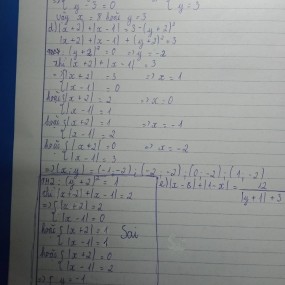 y - 3 = 0 y = 3
vậy x = 8 hoặc y = 3
d) |x+2| + |x-1| = 3 - (y+2)²
|x+2| + |x-1| + (y+2)² = 3
(y+2)² = 0 => y = -2
khi |x+2| + |x-1| = 3
=> { |x+2| = 3 => x = 1
{ |x-1| = 0
hoặc { |x+2| = 2 => x = 0
{ |x-1| = 1
hoặc { |x+2| = 1 => x = -1
{ |x-1| = 2
hoặc { |x+2| = 0 => x = -2
{ |x-1| = 3
=> (x, y) = (-1, -2) ; (-2, -2) ; (0, -2) ; (1, -2)
TH2: (y+2)² = 1
khi |x+2| + |x-1| = 2
=> { |x+2| = 2
{ |x-1| = 0
hoặc { |x+2| = 1
{ |x-1| = 1
Sai
hoặc { |x+2| = 0
{ |x-1| = 2
=> y = -1
12
|x-8| + |1-x| =
|y+1| + 3